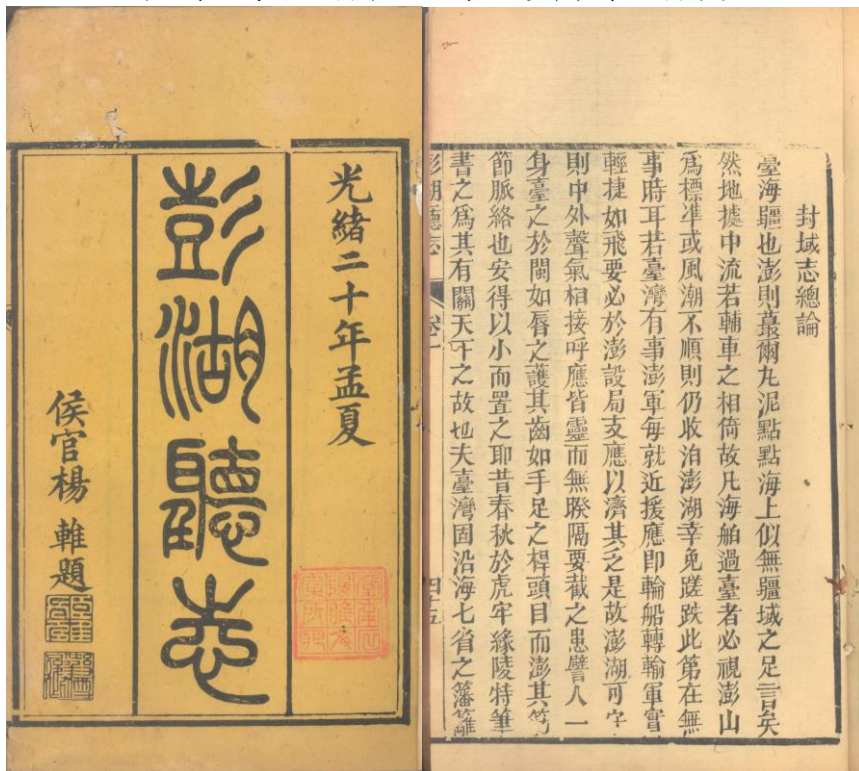 光緒二十年孟夏
彭湖聽志
侯官楊 題
封域志總論
臺海疆也澎則蕞爾丸泥點點海上似無疆域之足言矣
然地據中流若輔車之相倚故凡海舶過臺者必視澎山
爲標準或風潮不順則仍收泊澎湖幸免蹉跌此第在無
事時耳若臺灣有事澎軍每就近援應即輪船轉輸軍實
輕捷如飛要必於澎設局支應以濟其乏是故澎湖可守
則中外聲氣相接呼應皆靈而無睽隔要截之患譬人一
身臺之於閩如唇之護其齒如手足之桿頭目而澎其筋
節脈絡也安得以小而置之耶昔春秋於虎牢緣陵特筆
書之爲其有關天下之故也夫臺灣固沿海七省之藩籬
澎湖廳志 卷一 四十五